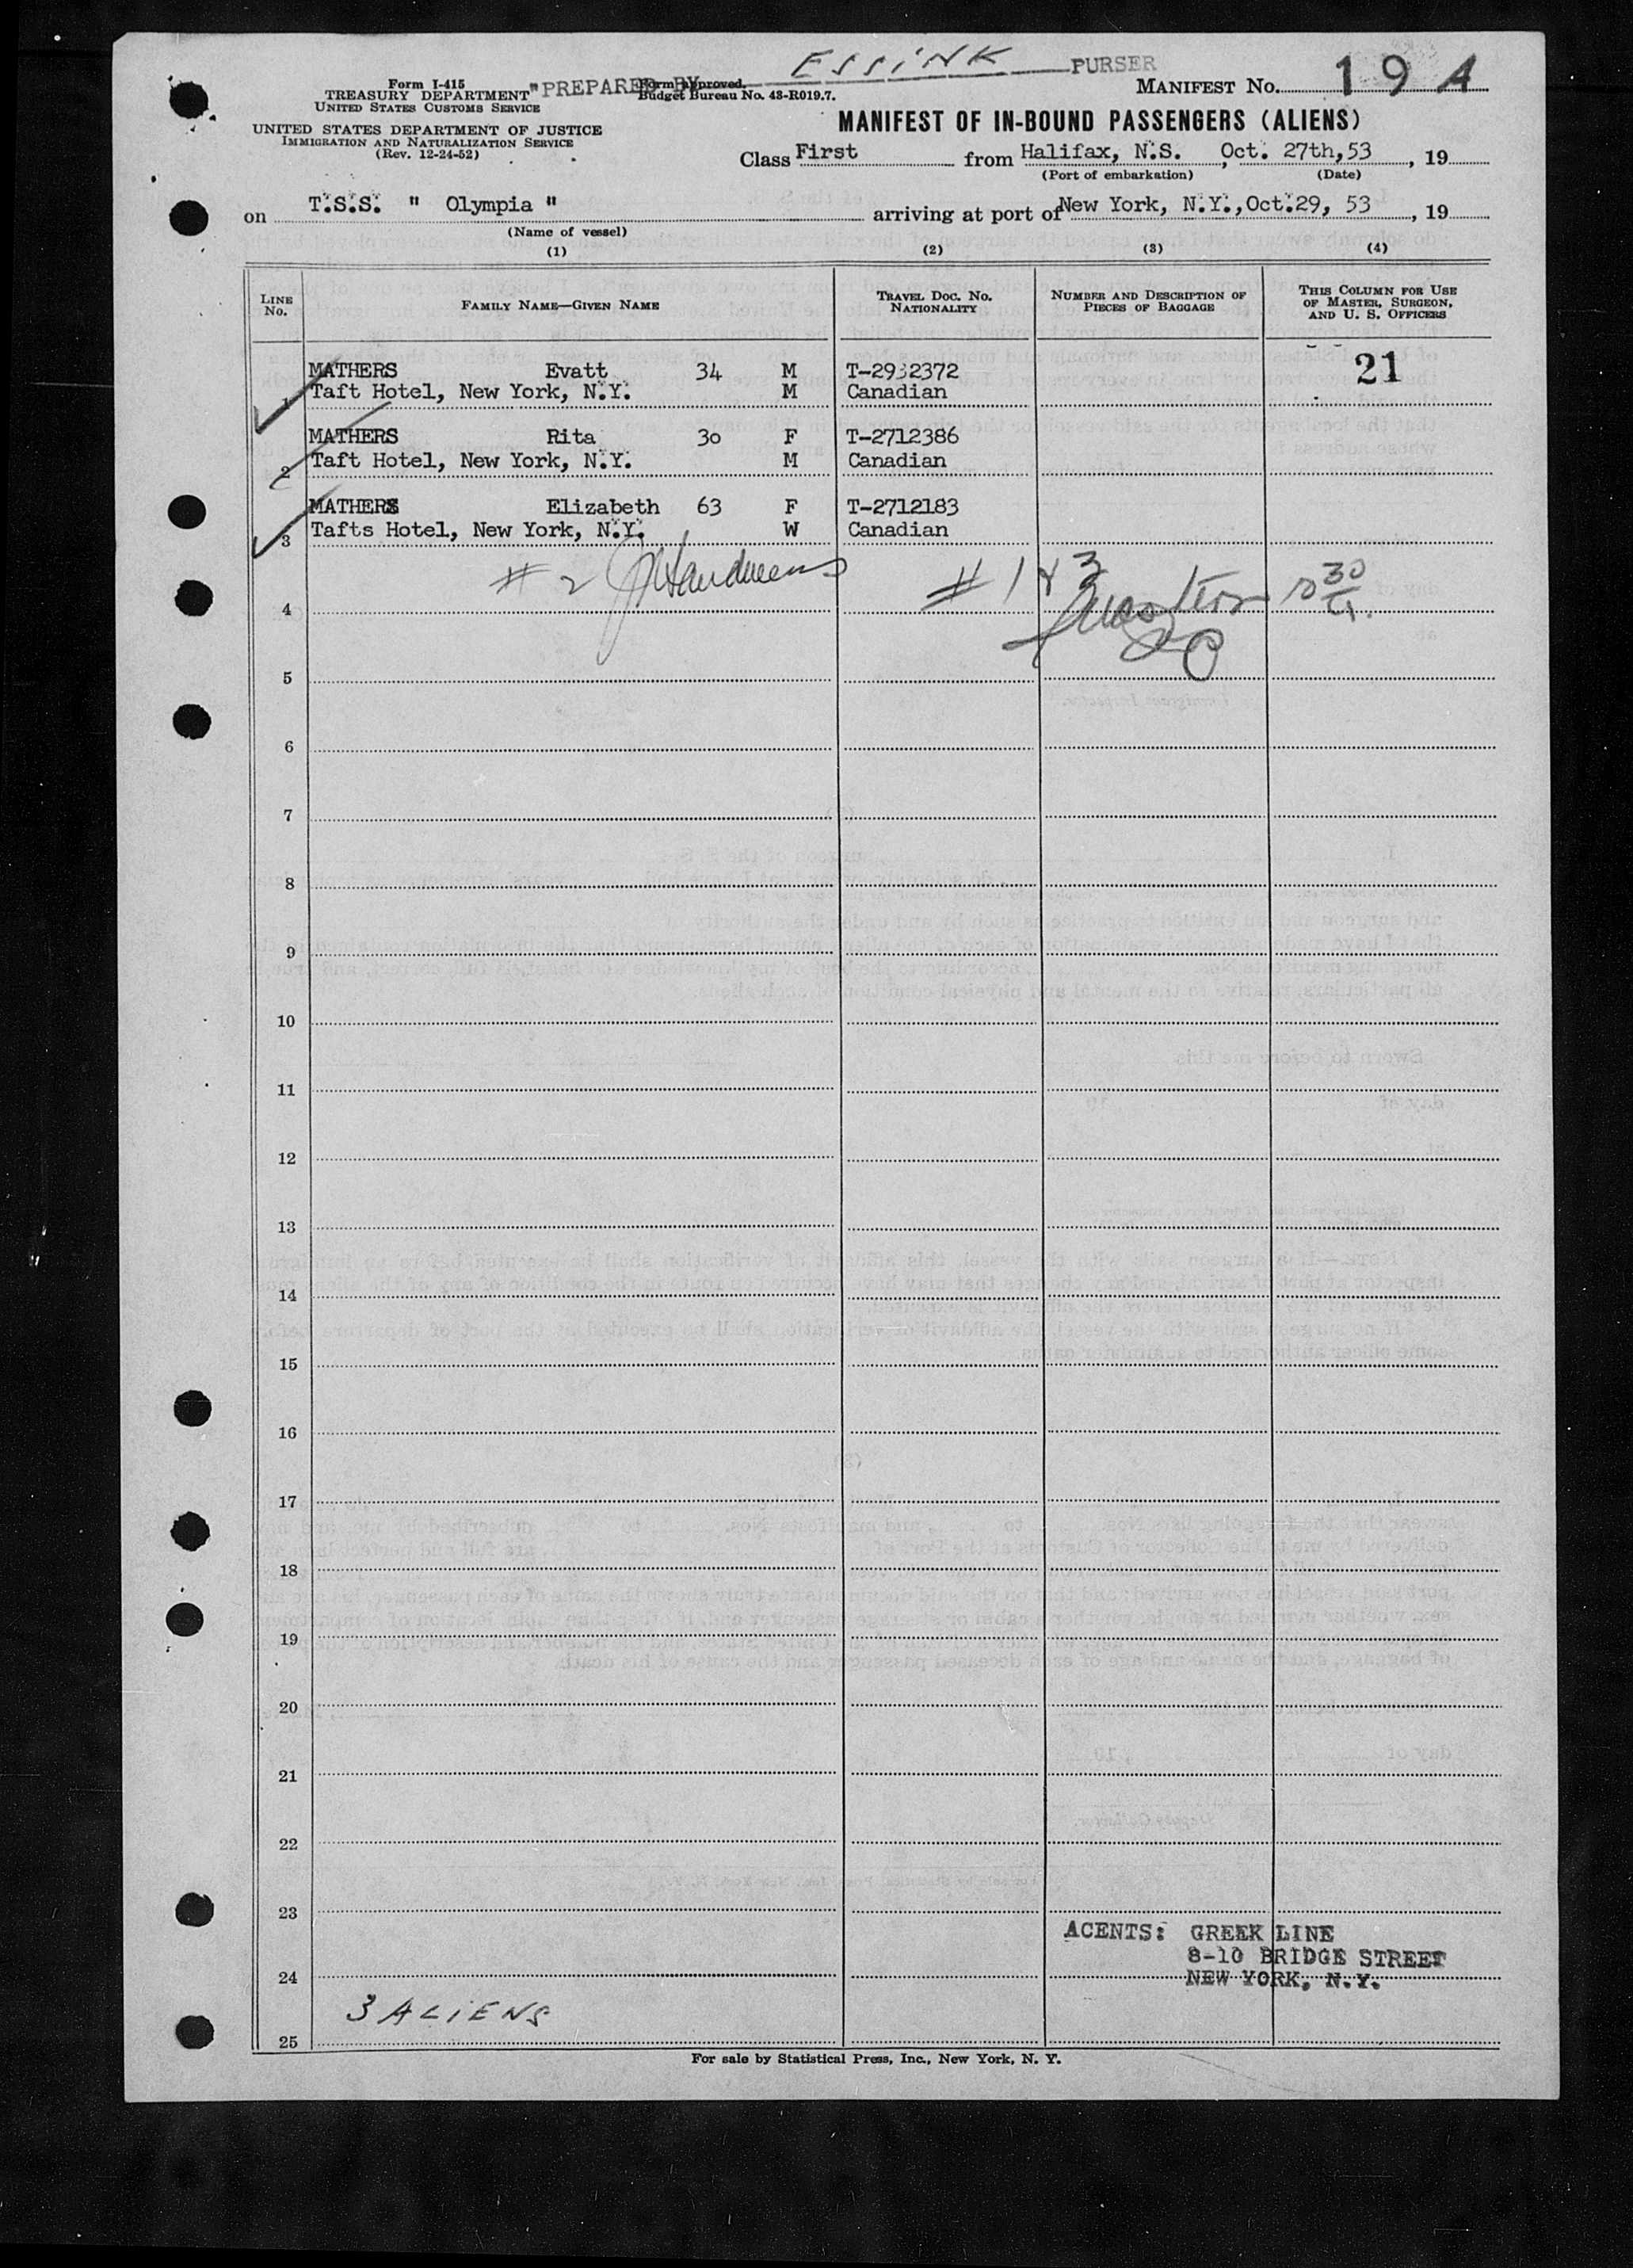 ESSINK PURSER
Form I-415
TREASURY DEPARTMENT
UNITED STATES CUSTOMS SERVICE
"PREPARED BY
Form approved.
Budget Bureau No. 43-R019.7.
MANIFEST No. 19 A
UNITED STATES DEPARTMENT OF JUSTICE
IMMIGRATION AND NATURALIZATION SERVICE
(Rev. 12-24-52)
MANIFEST OF IN-BOUND PASSENGERS (ALIENS)
Class First from Halifax, N.S. , Oct. 27th,53 , 19
(Port of embarkation) (Date)
on T.S.S. " Olympia " arriving at port of New York, N.Y.,Oct.29, 53 , 19
(Name of vessel)
(1) (2) (3) (4)
LINE No. FAMILY NAME—GIVEN NAME TRAVEL DOC. NO. NATIONALITY NUMBER AND DESCRIPTION OF PIECES OF BAGGAGE THIS COLUMN FOR USE OF MASTER, SURGEON, AND U. S. OFFICERS
MATHERS Evatt 34 M T-2932372 21
1 Taft Hotel, New York, N.Y. M Canadian
MATHERS Rita 30 F T-2712386
2 Taft Hotel, New York, N.Y. M Canadian
MATHERS Elizabeth 63 F T-2712183
3 Tafts Hotel, New York, N.Y. W Canadian
# 2 # 1 & 3
4
5
6
7
8
9
10
11
12
13
14
15
16
17
18
19
20
21
22
23
AGENTS: GREEK LINE
8-10 BRIDGE STREET
24 NEW YORK, N.Y.
3 ALIENS
25
For sale by Statistical Press, Inc., New York, N. Y.